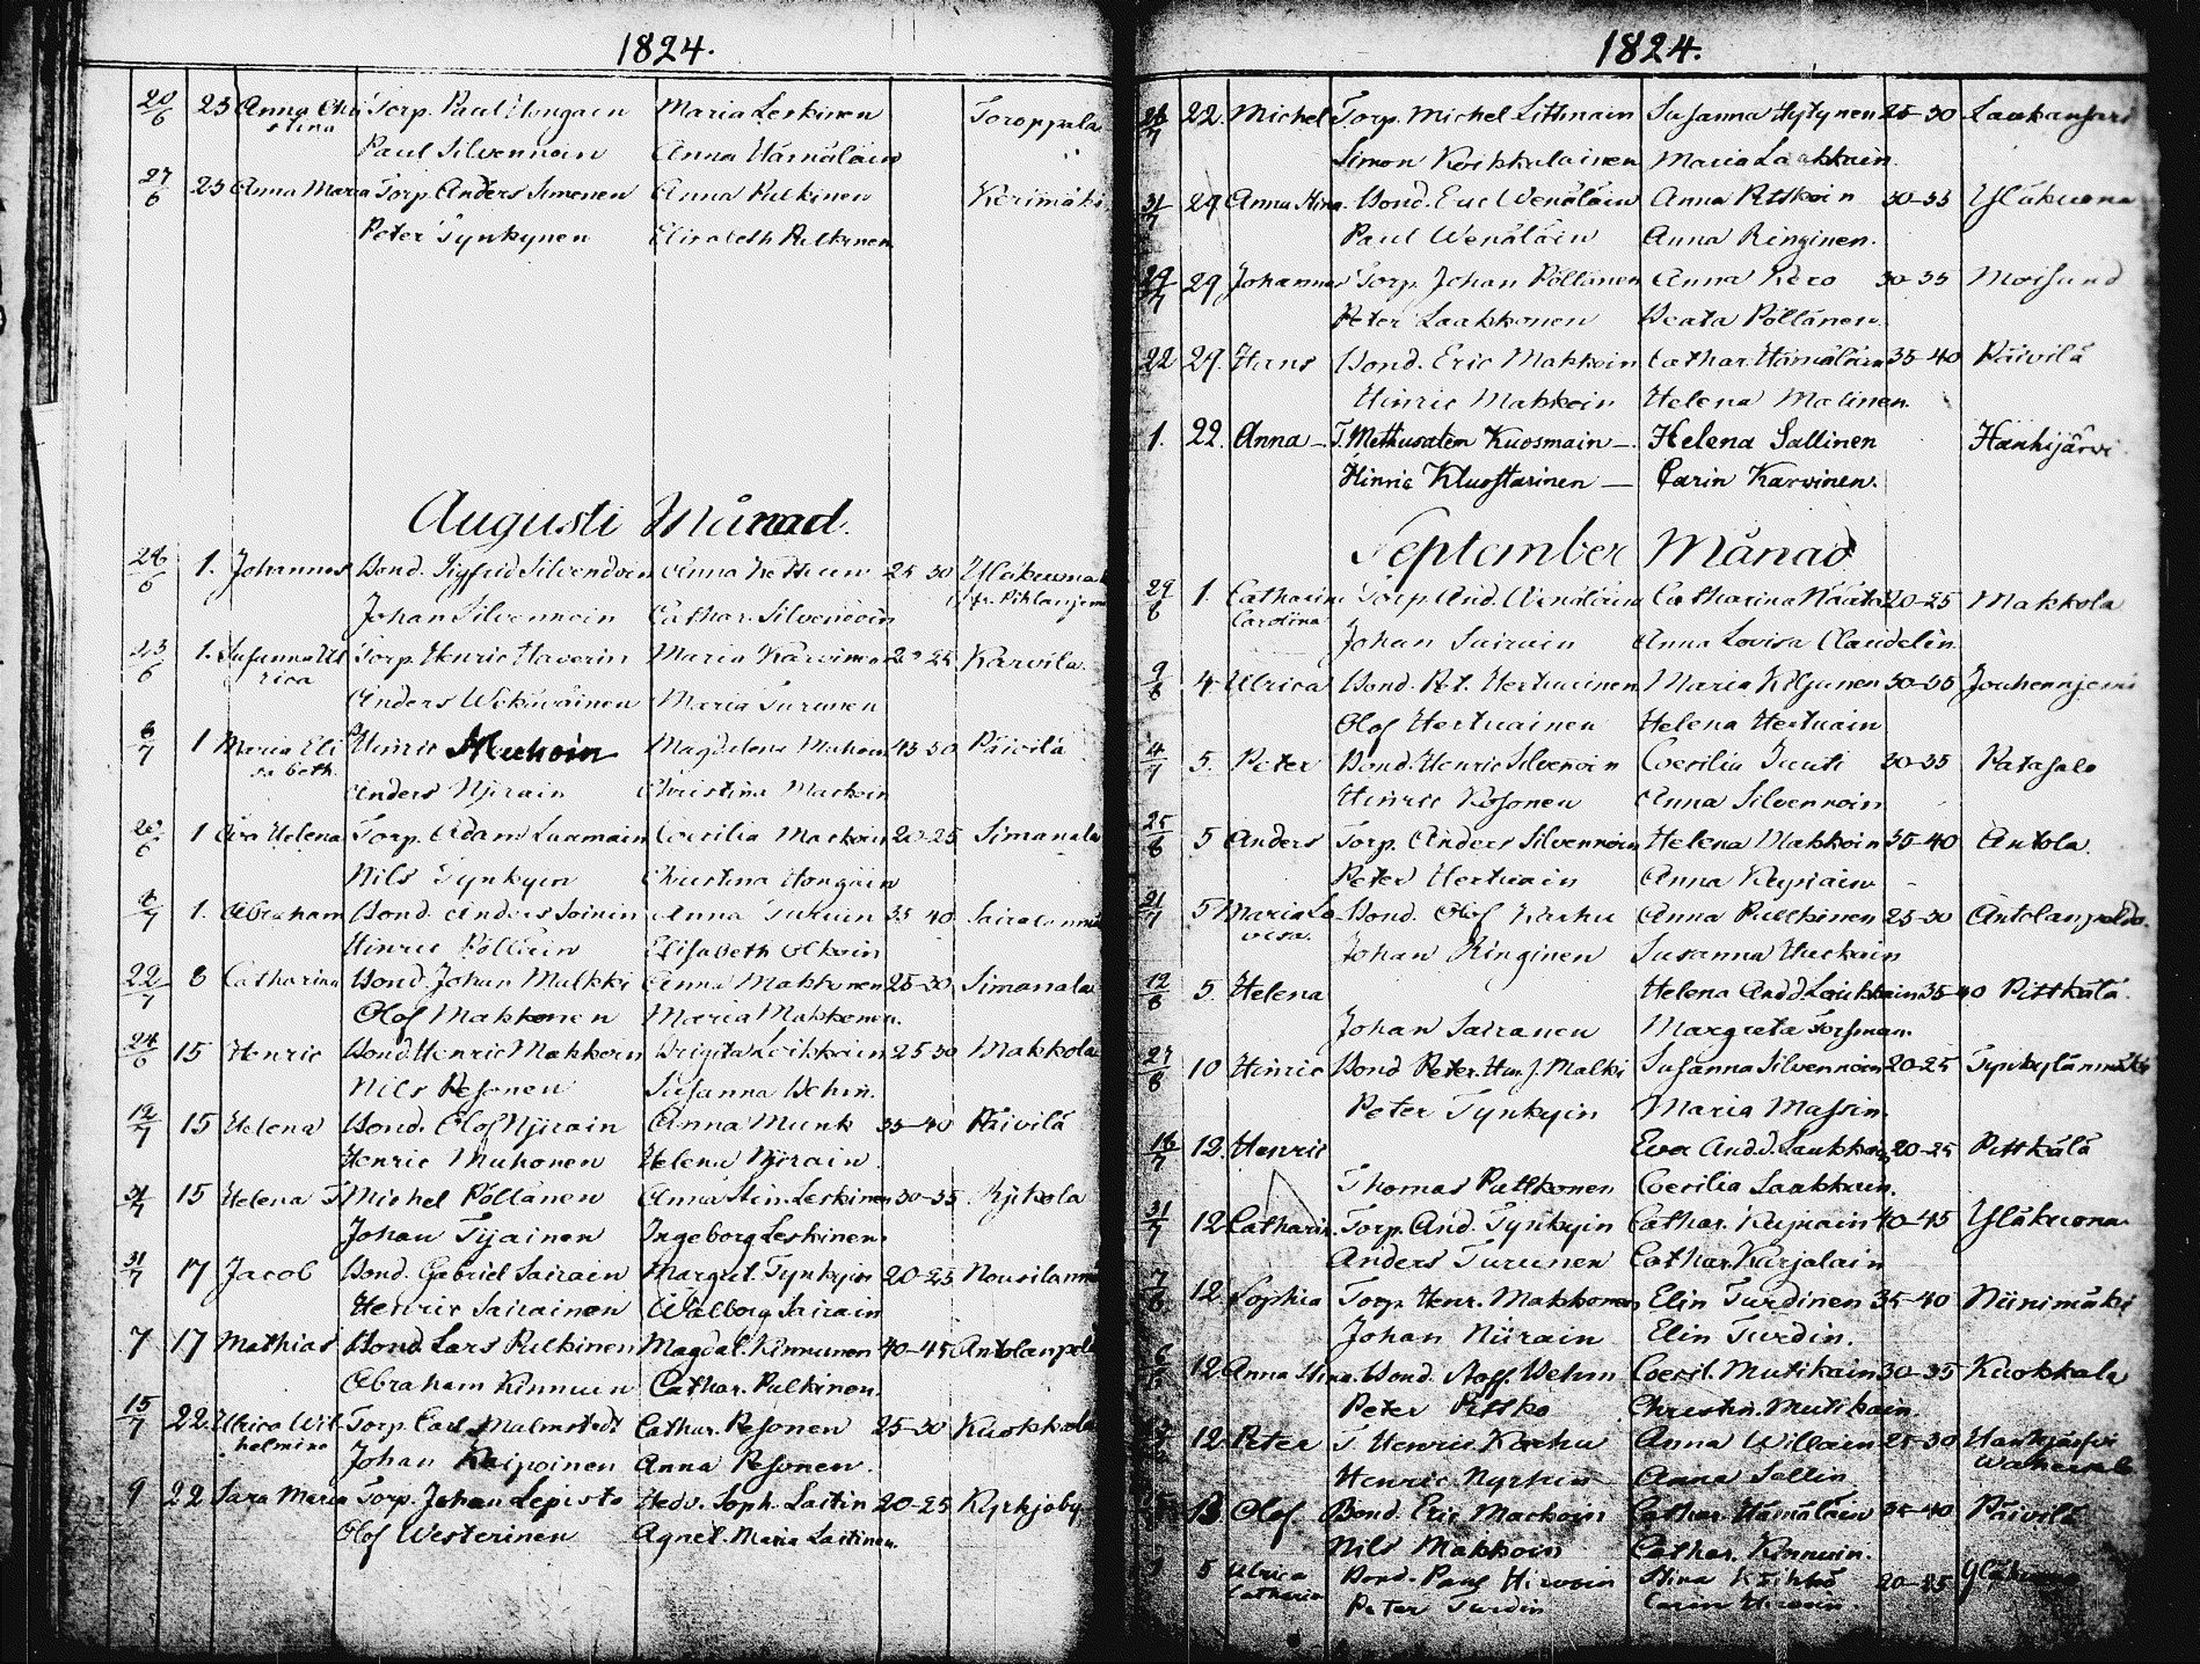 1824.
20/6 23 Anna Chri Torp. Paul Hongain Maria Leskinen Toroppala
stina
Paul Silvennoin Anna Hämäläin
27/6 23 Anna Maria Torp. Anders Simonen Anna Pulkinen Kerimäki
Peter Tynkynen Elisabeth Pulkinen
Augusti Månad.
1. Johannes Bond. Sigfrid Silvendoin Anna 25 30 Yläkuona
Johan Silvennoin Cathar. Silvennoin
1. Susanna Ul Torp. Henric Haverin Maria Karvinen 20 25 Karvila
rica
Anders Wäkäväinen Maria Turunen
6/7 1 Maria Eli Hinric Muhoin Magdalena Muhoin 45 50 Päivilä
sabeth.
Anders Njirain Christina Mackoin
20/6 1 Eva Helena Torp. Adam Luamain Coecilia Mackoin 20-25 Simanala
Nils Tynkyin Christina Hongain
1. Abraham Bond. Anders Soinin Anna Turuin 35 40
Hinric Pölläin Elisabeth Olkoin
22/7 8 Catharina Bond. Johan Mulkki Anna Makkonen 25-30 Simanala
Olof Makkonen Maria Makkonen.
24/6 15 Henric Bond. Henric Makkoin Brigita Loikkain 25 30 Makkola
Nils Pesonen Susanna Behm.
12/7 15 Helena Bond. Olof Njirain Anna Munk 35-40 Päivilä
Henric Muhonen Helena Njirain
31/7 15 Helena T. Michel Pöllänen Anna Stin. Leskinen 30-35
Johan Tijainen Ingeborg Leskinen.
31/7 17 Jacob Bond. Gabriel Sairain Margret. Tynkyin 20-25
Henric Sairainen Walborg Sairain
7 17 Mathias Bond Lars Pulkinen Magdal. Kinnunen 40-45 Antolanpeld
Abraham Kinnuin Cathar. Pulkinen.
15/7 22. Ulrica Wil- Torp. Carl Malmstedt Cathar. Pesonen 25-30 Kuokkala
helmina
Johan Kaipoinen Anna Pesonen.
9 22 Sara Maria Torp. Johan Lepisto Hedv. Soph. Laitin 20-25 Kyrkjoby
Olof Westerinen Agnet. Maria Laitinen.
1824.
22. Michel Torp. Michel Littmain Susanna Hytynen 25-30 Laukansari
Simon Koikkalainen Maria Laakkain.
31/7 29 Anna Stina. Bond. Eric Wenäläin Anna Pitkoin 30-35 Yläkuona
Paul Wenäläin Anna Ringinen.
29/7 29 Johannes Torp. Johan Pöllänen Anna Kero 30-35 Moisund
Peter Laakkonen Beata Pöllänen
22 29. Hans Bond. Eric Makkoin Cathar. Hämäläin 35-40 Päivilä
Hinric Makkoin Helena Malinen.
1. 22. Anna - T. Methusalem Kuosmain - Helena Sallinen Hanhijärvi
Hinric Kluostarinen - Carin Karvinen.
September Månad
29/8 1. Catharina Torp. And. Wenäläin Catharina 20-25 Makkola
Carolina
Johan Sairain Anna Lovisa Claudelin.
9/8 4 Ulrica Bond. Pet. Hertuainen Maria Kiljunen 30-35 Jouhennjemi
Olof Hertuainen Helena Hertuain
5. Peter Bond. Henric Silvenoin Coecilia Juuti 30-35 Patasalo
Hinric Kosonen Anna Silvennoin
25/8 5 Anders Torp. Anders Silvennoin Helena Makkoin 35-40 Antola.
Peter Hertuain Anna Repiain
21/7 5 Maria Lo- Bond. Olof Karhu Anna Pulkkinen 25-30 Antolanpeldo.
visa.
Johan Ringinen Susanna Huckain
12/8 5. Helena Helena And.d. Loukkain 35-40 Pitkälä.
Johan Sairanen Margreta Forsman.
27/8 10 Hinric Bond Peter Hin. J. Malki Susanna Silvennoin 20-25 Tynkylänmäki
Peter Tynkyin Maria Massin.
16/7 12. Henric Eva And.d. Laukkain 20-25 Pittkälä
Thomas Pulkkonen Coecilia Laakkain.
31/7 12 Catharin. Torp. And. Tynkyin Cathar. 40-45 Yläkuona
Anders Turunen Cathar. Karjalain
7/8 12. Sophia Torp. Henr. Makkonen Elin Turdinen 35-40 Niinimäki
Johan Niirain Elin Turdin.
12 Anna Stina. Bond. Staff. Behm Coecil. Mutikain 30-35 Kuokkala
Peter Pittko Christin. Mutikain.
12 Peter T. Henric Karhu Anna Willain 25-30
Henric Nyrhin Anna Sallin
13 Olof Bond. Eric Mackoin Cathar. Hämäläin 35-40 Päivilä
Nils Makkoin Cathar. Kinnuin.
5 Ulrica Bond. Paul Hirvoin Stina 20-25 Yläkuona
Catharin
Peter Turdin Carin Hirvoin.